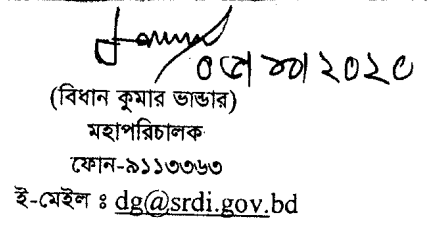 ২০২০
(বিধান কুমার ভান্ডার)
মহাপরিচালক
ফোন-৯১১৩৩৬৩
ই-মেইল ঃ dg@srdi.gov.bd